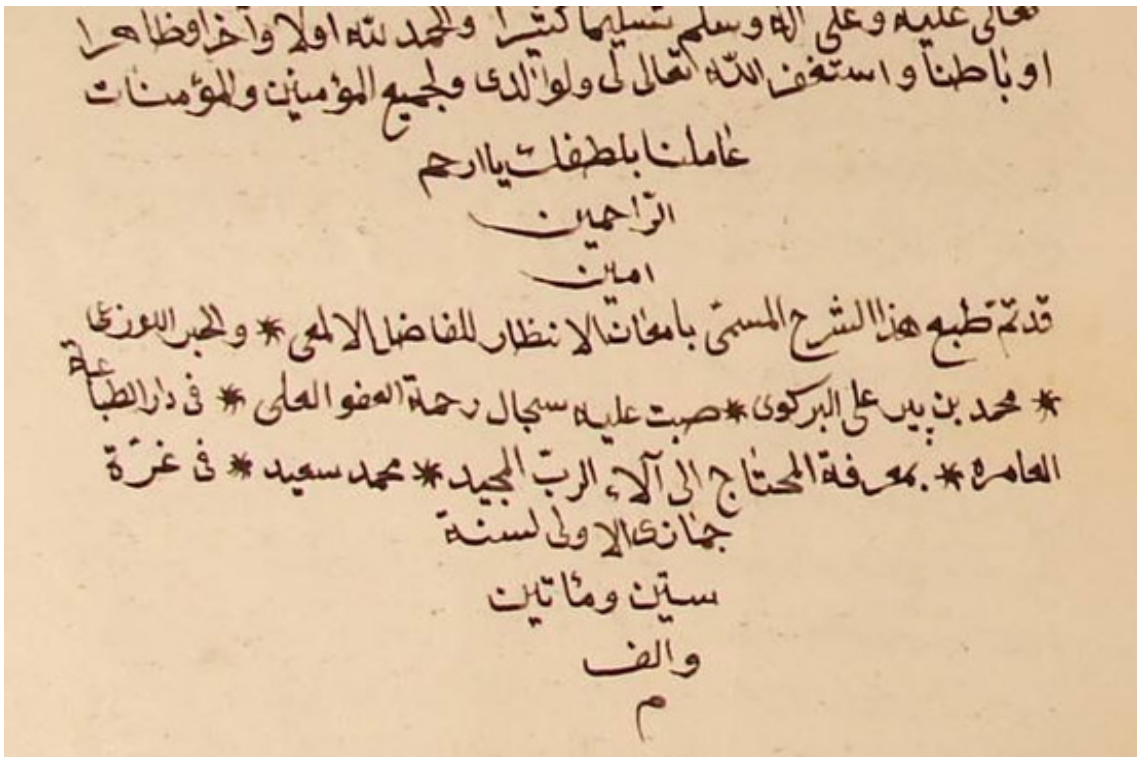 تعالى عليه وعلى اله وسلم تسليما كثيرا والحمد لله اولا وآخرا وظاهرا
او باطنا واستغفر الله تعالى لى ولوالدى ولجميع المؤمنين والمؤمنات
عاملنا بلطفك ياارحم
الراحمين
امين
قد تمّ طبع هذا الشرح المسمّى بامعان الانظار للفاضل الالمعى * والحبر اللوذعى
* محمد بن پير على البركوى * صبت عليه سجال رحمة العفو العلى * فى دار الطباعة
العامره * بمعرفة المحتاج الى آلاء الربّ المجيد * محمد سعيد * فى غرّة
جمادى الاولى لسنة
ستين ومائتين
والف
م